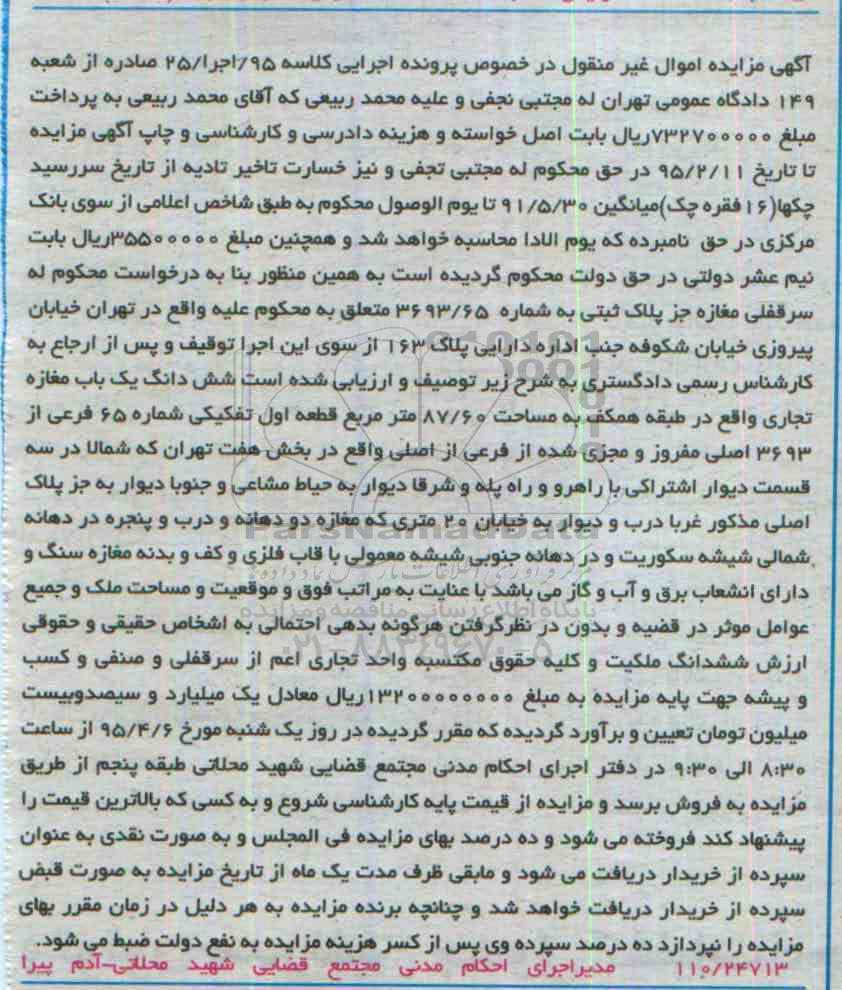 آگهی مزایده اموال غیر منقول در خصوص پرونده اجرایی کلاسه ۹۵/اجرا/۲۵ صادره از شعبه
۱۴۹ دادگاه عمومی تهران له مجتبی نجفی و علیه محمد ربیعی که آقای محمد ربیعی به پرداخت
مبلغ ۷۳۲۷۰۰۰۰۰ریال بابت اصل خواسته و هزینه دادرسی و کارشناسی و چاپ آگهی مزایده
تا تاریخ ۹۵/۲/۱۱ در حق محکوم له مجتبی تجفی و نیز خسارت تاخیر تادیه از تاریخ سررسید
چکها(۱۶فقره چک)میانگین ۹۱/۵/۳۰ تا یوم الوصول محکوم به طبق شاخص اعلامی از سوی بانک
مرکزی در حق نامبرده که یوم الادا محاسبه خواهد شد و همچنین مبلغ ۳۵۵۰۰۰۰۰ریال بابت
نیم عشر دولتی در حق دولت محکوم گردیده است به همین منظور بنا به درخواست محکوم له
سرقفلی مغازه جز پلاک ثبتی به شماره ۳۶۹۳/۶۵ متعلق به محکوم علیه واقع در تهران خیابان
پیروزی خیابان شکوفه جنب اداره دارایی پلاک ۱۶۳ از سوی این اجرا توقیف و پس از ارجاع به
کارشناس رسمی دادگستری به شرح زیر توصیف و ارزیابی شده است شش دانگ یک باب مغازه
تجاری واقع در طبقه همکف به مساحت ۸۷/۶۰ متر مربع قطعه اول تفکیکی شماره ۶۵ فرعی از
۳۶۹۳ اصلی مفروز و مجزی شده از فرعی از اصلی واقع در بخش هفت تهران که شمالا در سه
قسمت دیوار اشتراکی با راهرو و راه پله و شرقا دیوار به حیاط مشاعی و جنوبا دیوار به جز پلاک
اصلی مذکور غربا درب و دیوار به خیابان ۲۰ متری که مغازه دو دهانه و درب و پنجره در دهانه
شمالی شیشه سکوریت و در دهانه جنوبی شیشه معمولی با قاب فلزی و کف و بدنه مغازه سنگ و
دارای انشعاب برق و آب و گاز می باشد با عنایت به مراتب فوق و موقعیت و مساحت ملک و جمیع
عوامل موثر در قضیه و بدون در نظرگرفتن هرگونه بدهی احتمالی به اشخاص حقیقی و حقوقی
ارزش ششدانگ ملکیت و کلیه حقوق مکتسبه واحد تجاری اعم از سرقفلی و صنفی و کسب
و پیشه جهت پایه مزایده به مبلغ ۱۳۲۰۰۰۰۰۰۰۰ریال معادل یک میلیارد و سیصدوبیست
میلیون تومان تعیین و برآورد گردیده که مقرر گردیده در روز یک شنبه مورخ ۹۵/۴/۶ از ساعت
۸:۳۰ الی ۹:۳۰ در دفتر اجرای احکام مدنی مجتمع قضایی شهید محلاتی طبقه پنجم از طریق
مزایده به فروش برسد و مزایده از قیمت پایه کارشناسی شروع و به کسی که بالاترین قیمت را
پیشنهاد کند فروخته می شود و ده درصد بهای مزایده فی المجلس و به صورت نقدی به عنوان
سپرده از خریدار دریافت می شود و مابقی ظرف مدت یک ماه از تاریخ مزایده به صورت قبض
سپرده از خریدار دریافت خواهد شد و چنانچه برنده مزایده به هر دلیل در زمان مقرر بهای
مزایده را نپردازد ده درصد سپرده وی پس از کسر هزینه مزایده به نفع دولت ضبط می شود.
۱۱۰/۲۴۷۱۳ مدیراجرای احکام مدنی مجتمع قضایی شهید محلاتی-آدم پیرا
ParsNamadData
پایگاه اطلاع رسانی مناقصه و مزایده
۰۲۱-۸۸۳۴۹۶۷۰-۵